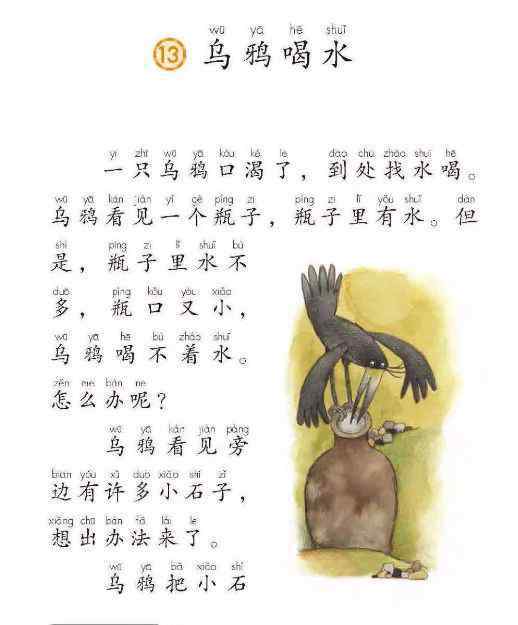 wū yā hē shuǐ
13 乌鸦喝水
yì zhī wū yā kǒu kě le dào chù zhǎo shuǐ hē
一只乌鸦口渴了，到处找水喝。
wū yā kàn jiàn yí gè píng zi píng zi lǐ yǒu shuǐ dàn
乌鸦看见一个瓶子，瓶子里有水。但
shì píng zi lǐ shuǐ bù
是，瓶子里水不
duō píng kǒu yòu xiǎo
多，瓶口又小，
wū yā hē bù zháo shuǐ
乌鸦喝不着水。
zěn me bàn ne
怎么办呢？
wū yā kàn jiàn páng
乌鸦看见旁
biān yǒu xǔ duō xiǎo shí zǐ
边有许多小石子，
xiǎng chū bàn fǎ lái le
想出办法来了。
wū yā bǎ xiǎo shí
乌鸦把小石